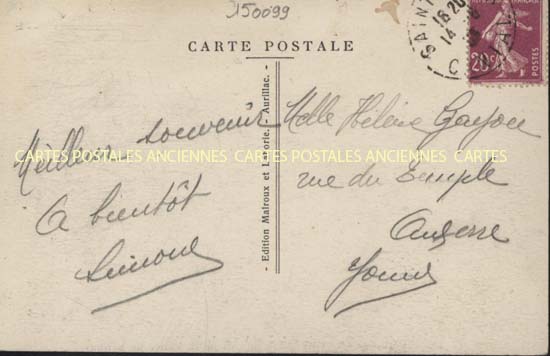 150099
CARTE POSTALE
SAINT
18 20
14
CANTAL
FRANÇAISE
20c
POSTES
Meilleur souvenir
A bientôt
Simone
Edition Malroux et Laborie. - Aurillac.
Melle Hélène
rue du Temple
Auxerre
Yonne
CARTES POSTALES ANCIENNES CARTES POSTALES ANCIENNES CARTES